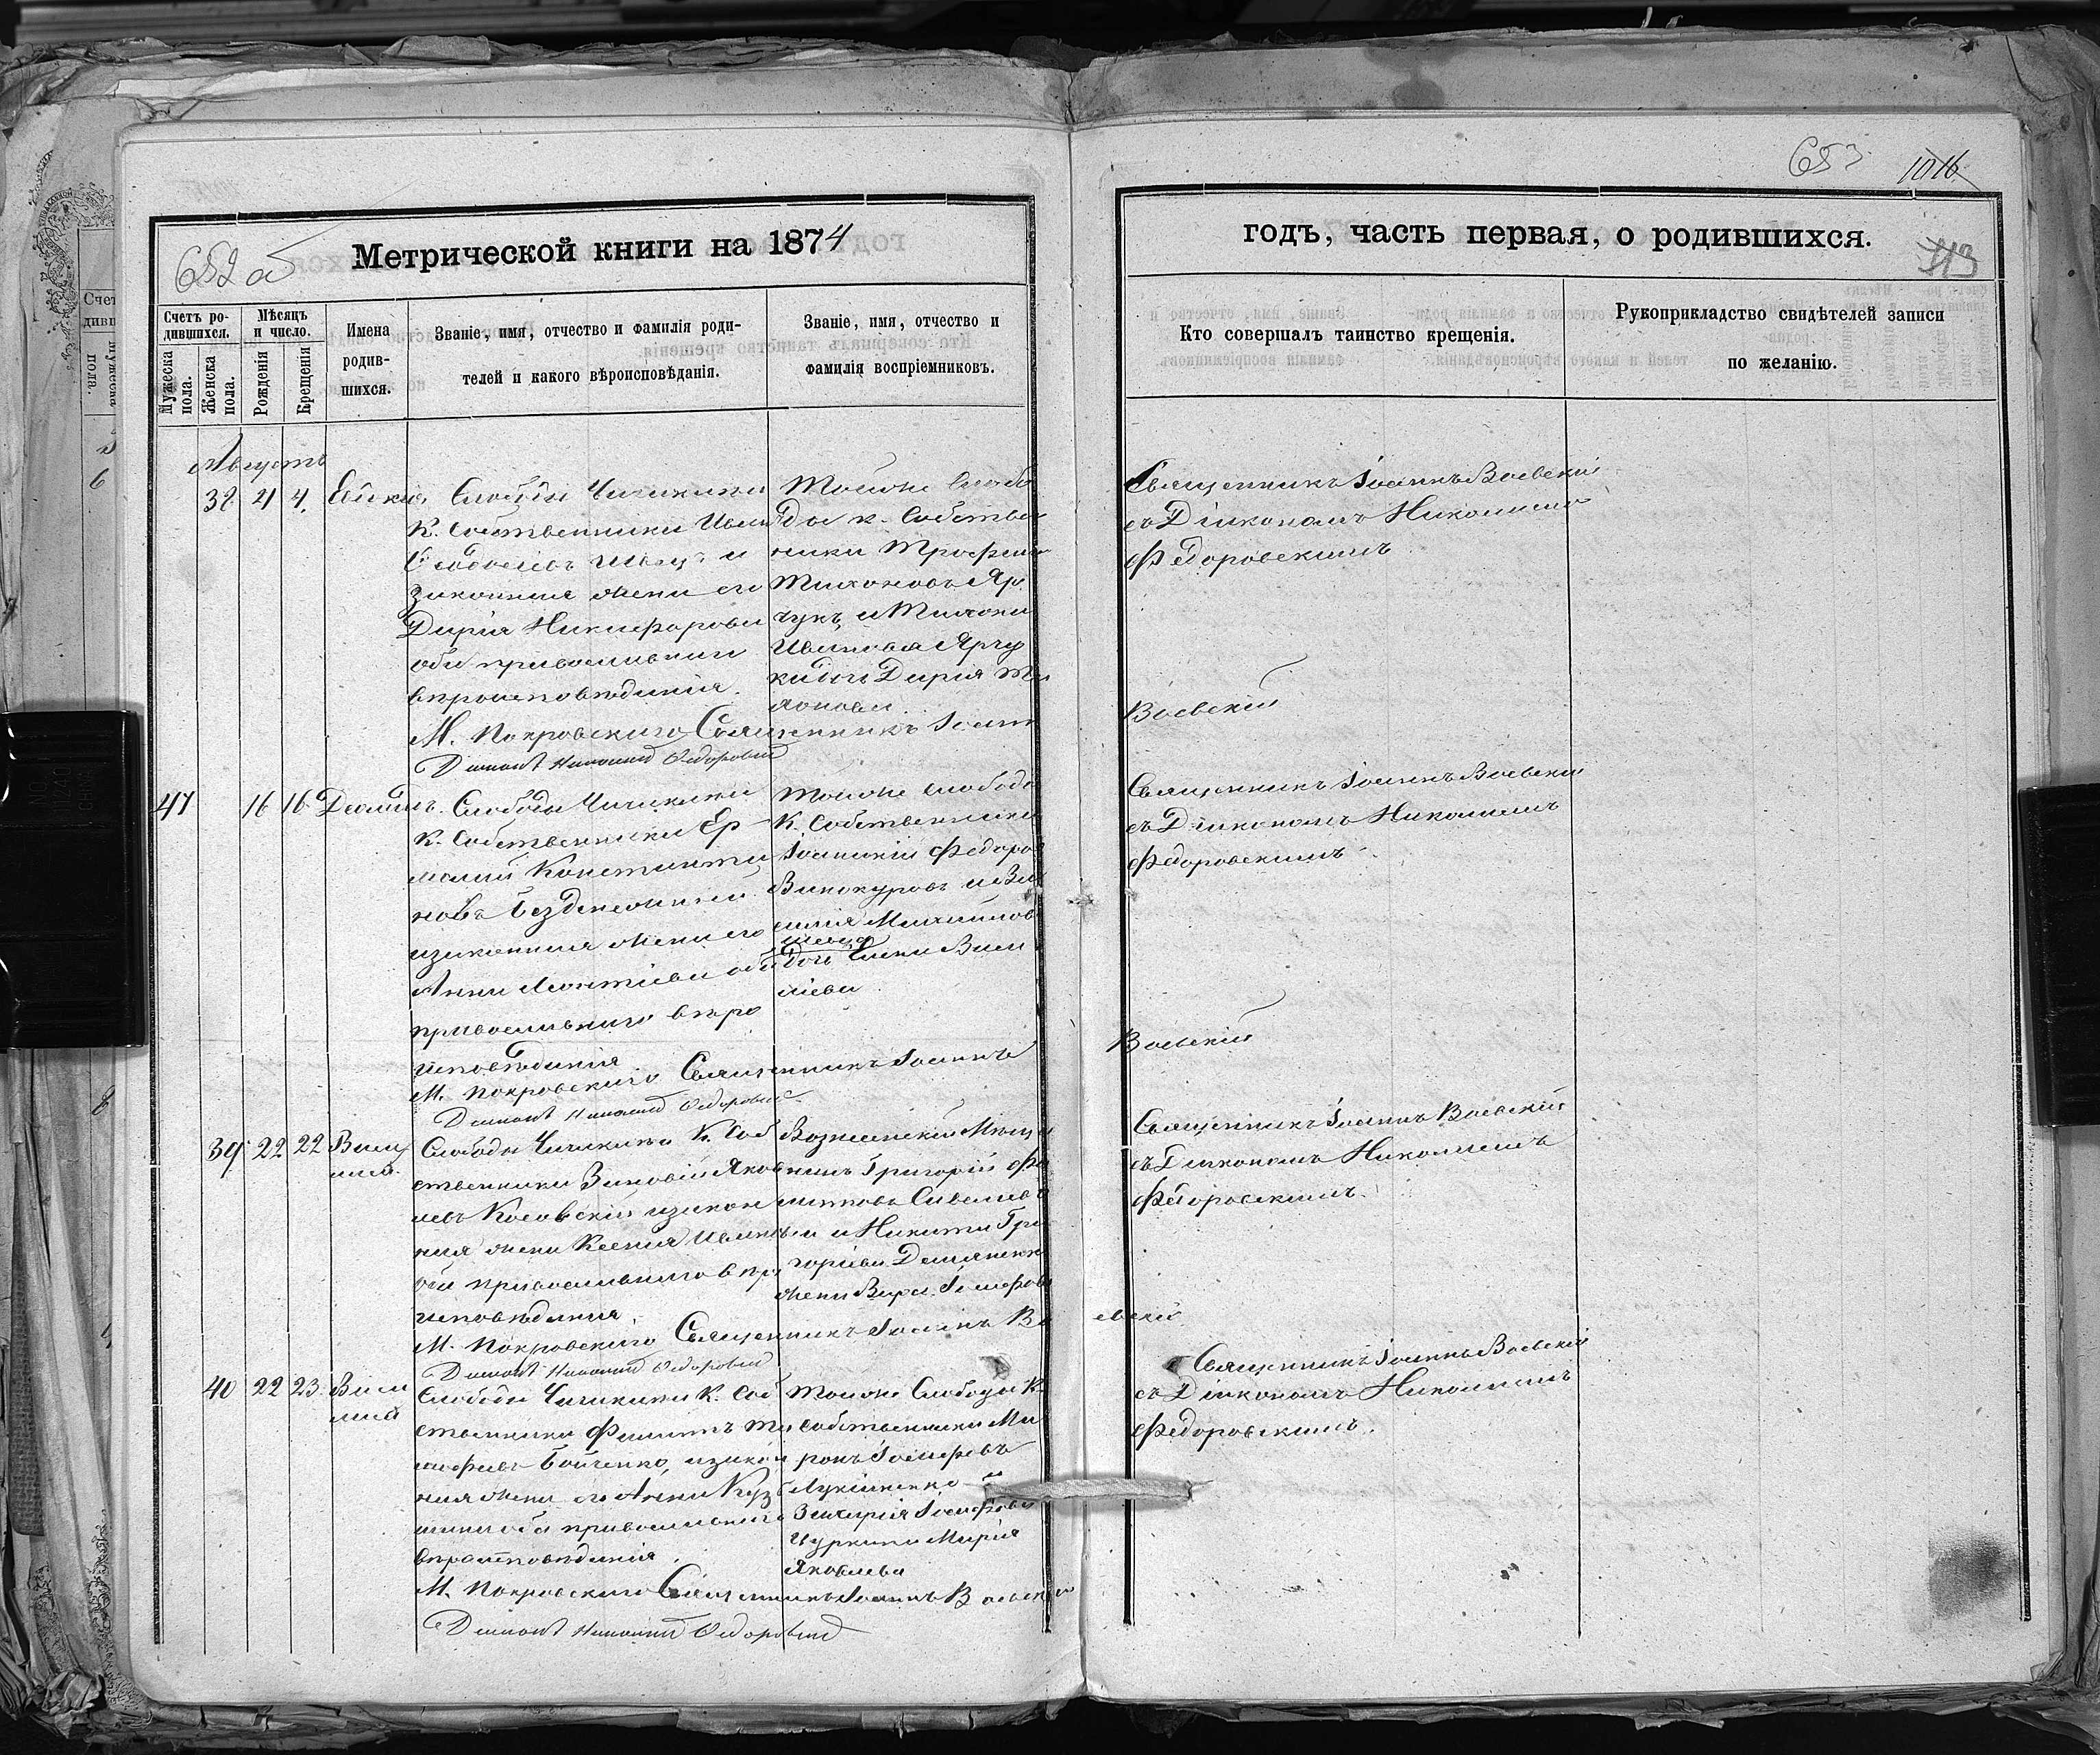 652 об
Метрической книги на 1874
Счетъ ро-
дившихся.
Мѣсяцъ
и число.
Имена
родив-
шихся.
Званіе, имя, отчество и фамилія роди-
телей и какого вѣроисповѣданія.
Званіе, имя, отчество и
фамилія воспріемниковъ.
Мужеска
пола.
Женска
пола.
Рожденія
Крещенія
Августъ
38 4 4.
Слободы Чичиклеи
К. собственника Иван
и
законная жена его
Дарія Никифорова
оба православнаго
вѣроисповѣданія.
Тойже слобо
ды к. собствен
ника Трофим
Тихоновъ Яр
чукъ и Тихона
Иванова Ярчу
ка дочь Дарія Ти
хонова.
М. Покровскаго Священникъ Іоанн
Діаконъ Николай Федоровскій
47 16 16 Даміанъ.
Слободы Чичиклеи
К. собственника Ер
молай Константи
новъ
изаконная жена его
Анна Леонтіева оба
православнаго вѣро
исповѣданія
Тойже слободы
К. собственника
Іоаникій Федоров
Винокуровъ и Ва
силія Михайлов
дочь Елена Васи
ліева
М. Покровскаго Священникъ Іоаннъ
Діаконъ Николай Федоровскій
39 22 22 Васи
лиса.
Слободы Чичиклеи К. соб
ственника Зиновій Яков
левъ Косовскій изакон
ная жена Ксенія Иванова
оба православнаго вѣро
исповѣданія.
Вознесенскій Мѣща
нинъ Григорій Фи
липповъ Савельев
и Никита Гри
горіева Демяненк
жена Вѣра Іосифова
М. Покровскаго Священникъ Іоаннъ Во
Діаконъ Николай Федоровскій
40 22 23. Васи
лиса
Слободы Чичиклеи К. соб
ственника Филиппъ Ти
мофеевъ Бойченко, изакон
ная жена его Анна Кузь
мина оба православнаго
вѣроисповѣданія.
Тойже Слободы К.
собственника Ми
ронъ Іосифовъ
Лукіяненко и
Захарія Іосифова
Цуркана Марія
Яковлева
М. Покровскаго Священникъ Іоаннъ Воевскій
Діаконъ Николай Федоровскій
653 1016
годъ, часть первая, о родившихся.
113
Кто совершалъ таинство крещенія.
Рукоприкладство свидѣтелей записи
по желанію.
Священникъ Іоаннъ Воевскій
съ Діакономъ Николаемъ
Федоровскимъ
Воевскій
Священникъ Іоаннъ Воевскій
съ Діакономъ Николаемъ
Федоровскимъ.
Воевскій
Священникъ Іоаннъ Воевскій
съ Діакономъ Николаемъ
Федоровскимъ.
евскій
Священникъ Іоаннъ Воевскій
съ Діакономъ Николаемъ
Федоровскимъ.